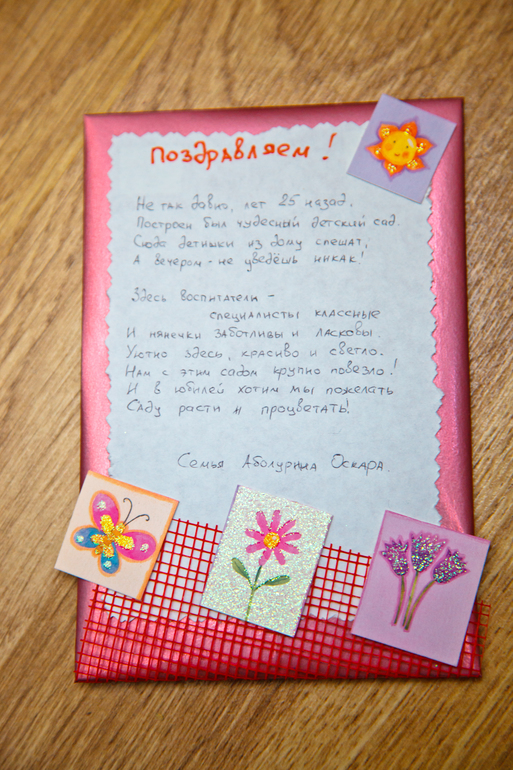 Поздравляем!
Не так давно, лет 25 назад,
Построен был чудесный детский сад.
Сюда детишки из дому спешат,
А вечером - не уведёшь никак!
Здесь воспитатели -
специалисты классные
И нянечки заботливы и ласковы.
Уютно здесь, красиво и светло.
Нам с этим садом крупно повезло!
И в юбилей хотим мы пожелать
Саду расти и процветать!
Семья Аболурина Оскара.